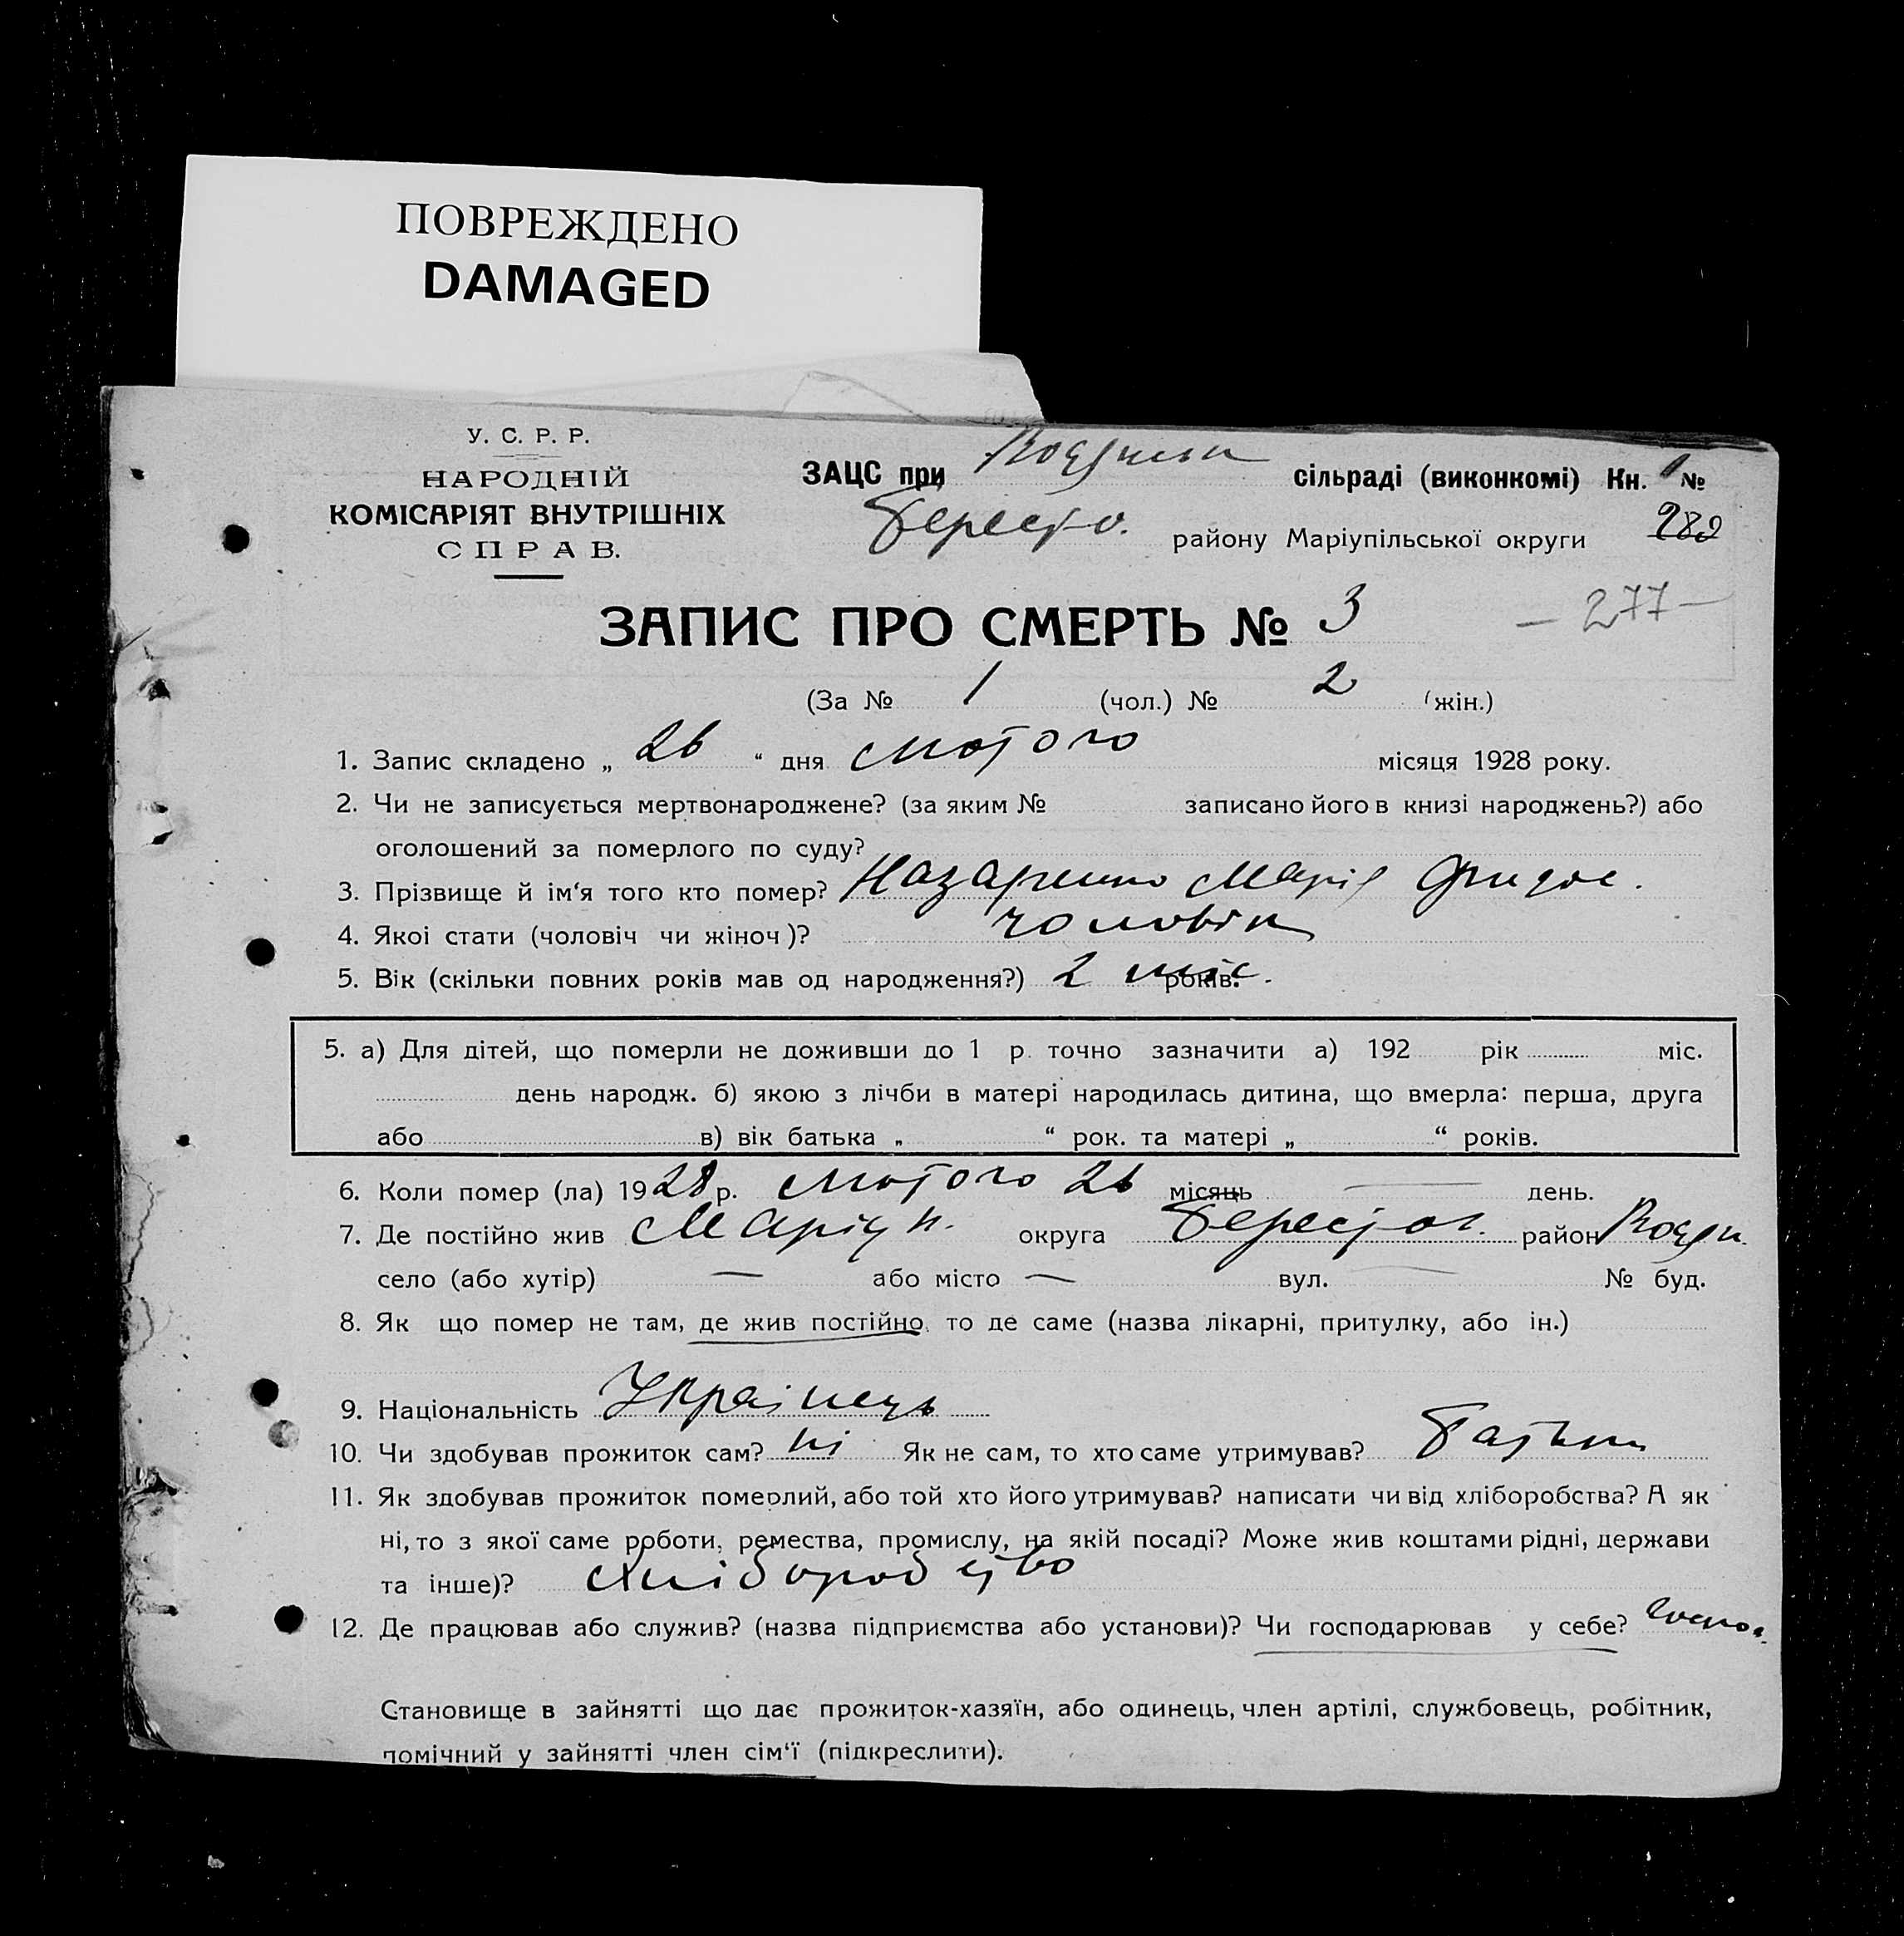 ПОВРЕЖДЕНО
DAMAGED
У. С. Р. Р.
НАРОДНІЙ
КОМІСАРІЯТ ВНУТРІШНІХ
СПРАВ.
ЗАЦС при сільраді (виконкомі) Кн. 1 №
Бересто. району Маріупільської округи 282
ЗАПИС ПРО СМЕРТЬ № 3 — 277 —
(За № 1 (чол.) № 2 (жін.)
1. Запис складено „ 26 “ дня лютого місяця 1928 року.
2. Чи не записується мертвонароджене? (за яким № записано його в книзі народжень?) або
оголошений за померлого по суду?
3. Прізвище й ім‘я того кто помер? Назаренко Марія
4. Якоі стати (чоловіч чи жіноч)? чоловік
5. Вік (скільки повних років мав од народження?) 2 міс. років.
5. а) Для дітей, що померли не доживши до 1 р. точно зазначити а) 192 рік міс.
день народж. б) якою з лічби в матері народилась дитина, що вмерла: перша, друга
або в) вік батька „ “ рок. та матері „ “ років.
6. Коли помер (ла) 1928 р. лютого 26 місяць — день.
7. Де постійно жив Маріуп. округа Берестов. район
село (або хутір) — або місто — вул. — № буд.
8. Як що помер не там, де жив постійно, то де саме (назва лікарні, притулку, або ін.)
9. Національність Українець
10. Чи здобував прожиток сам? ні Як не сам, то хто саме утримував? батьки
11. Як здобував прожиток померлий, або той хто його утримував? написати чи від хліборобства? А як
ні, то з якої саме роботи, ремества, промислу, на якій посаді? Може жив коштами рідні, держави
та інше)? хліборобство
12. Де працював або служив? (назва підприємства або установи)? Чи господарював у себе?
Становище в зайнятті що дає прожиток-хазяїн, або одинець, член артілі, службовець, робітник,
помічний у зайнятті член сім‘ї (підкреслити).